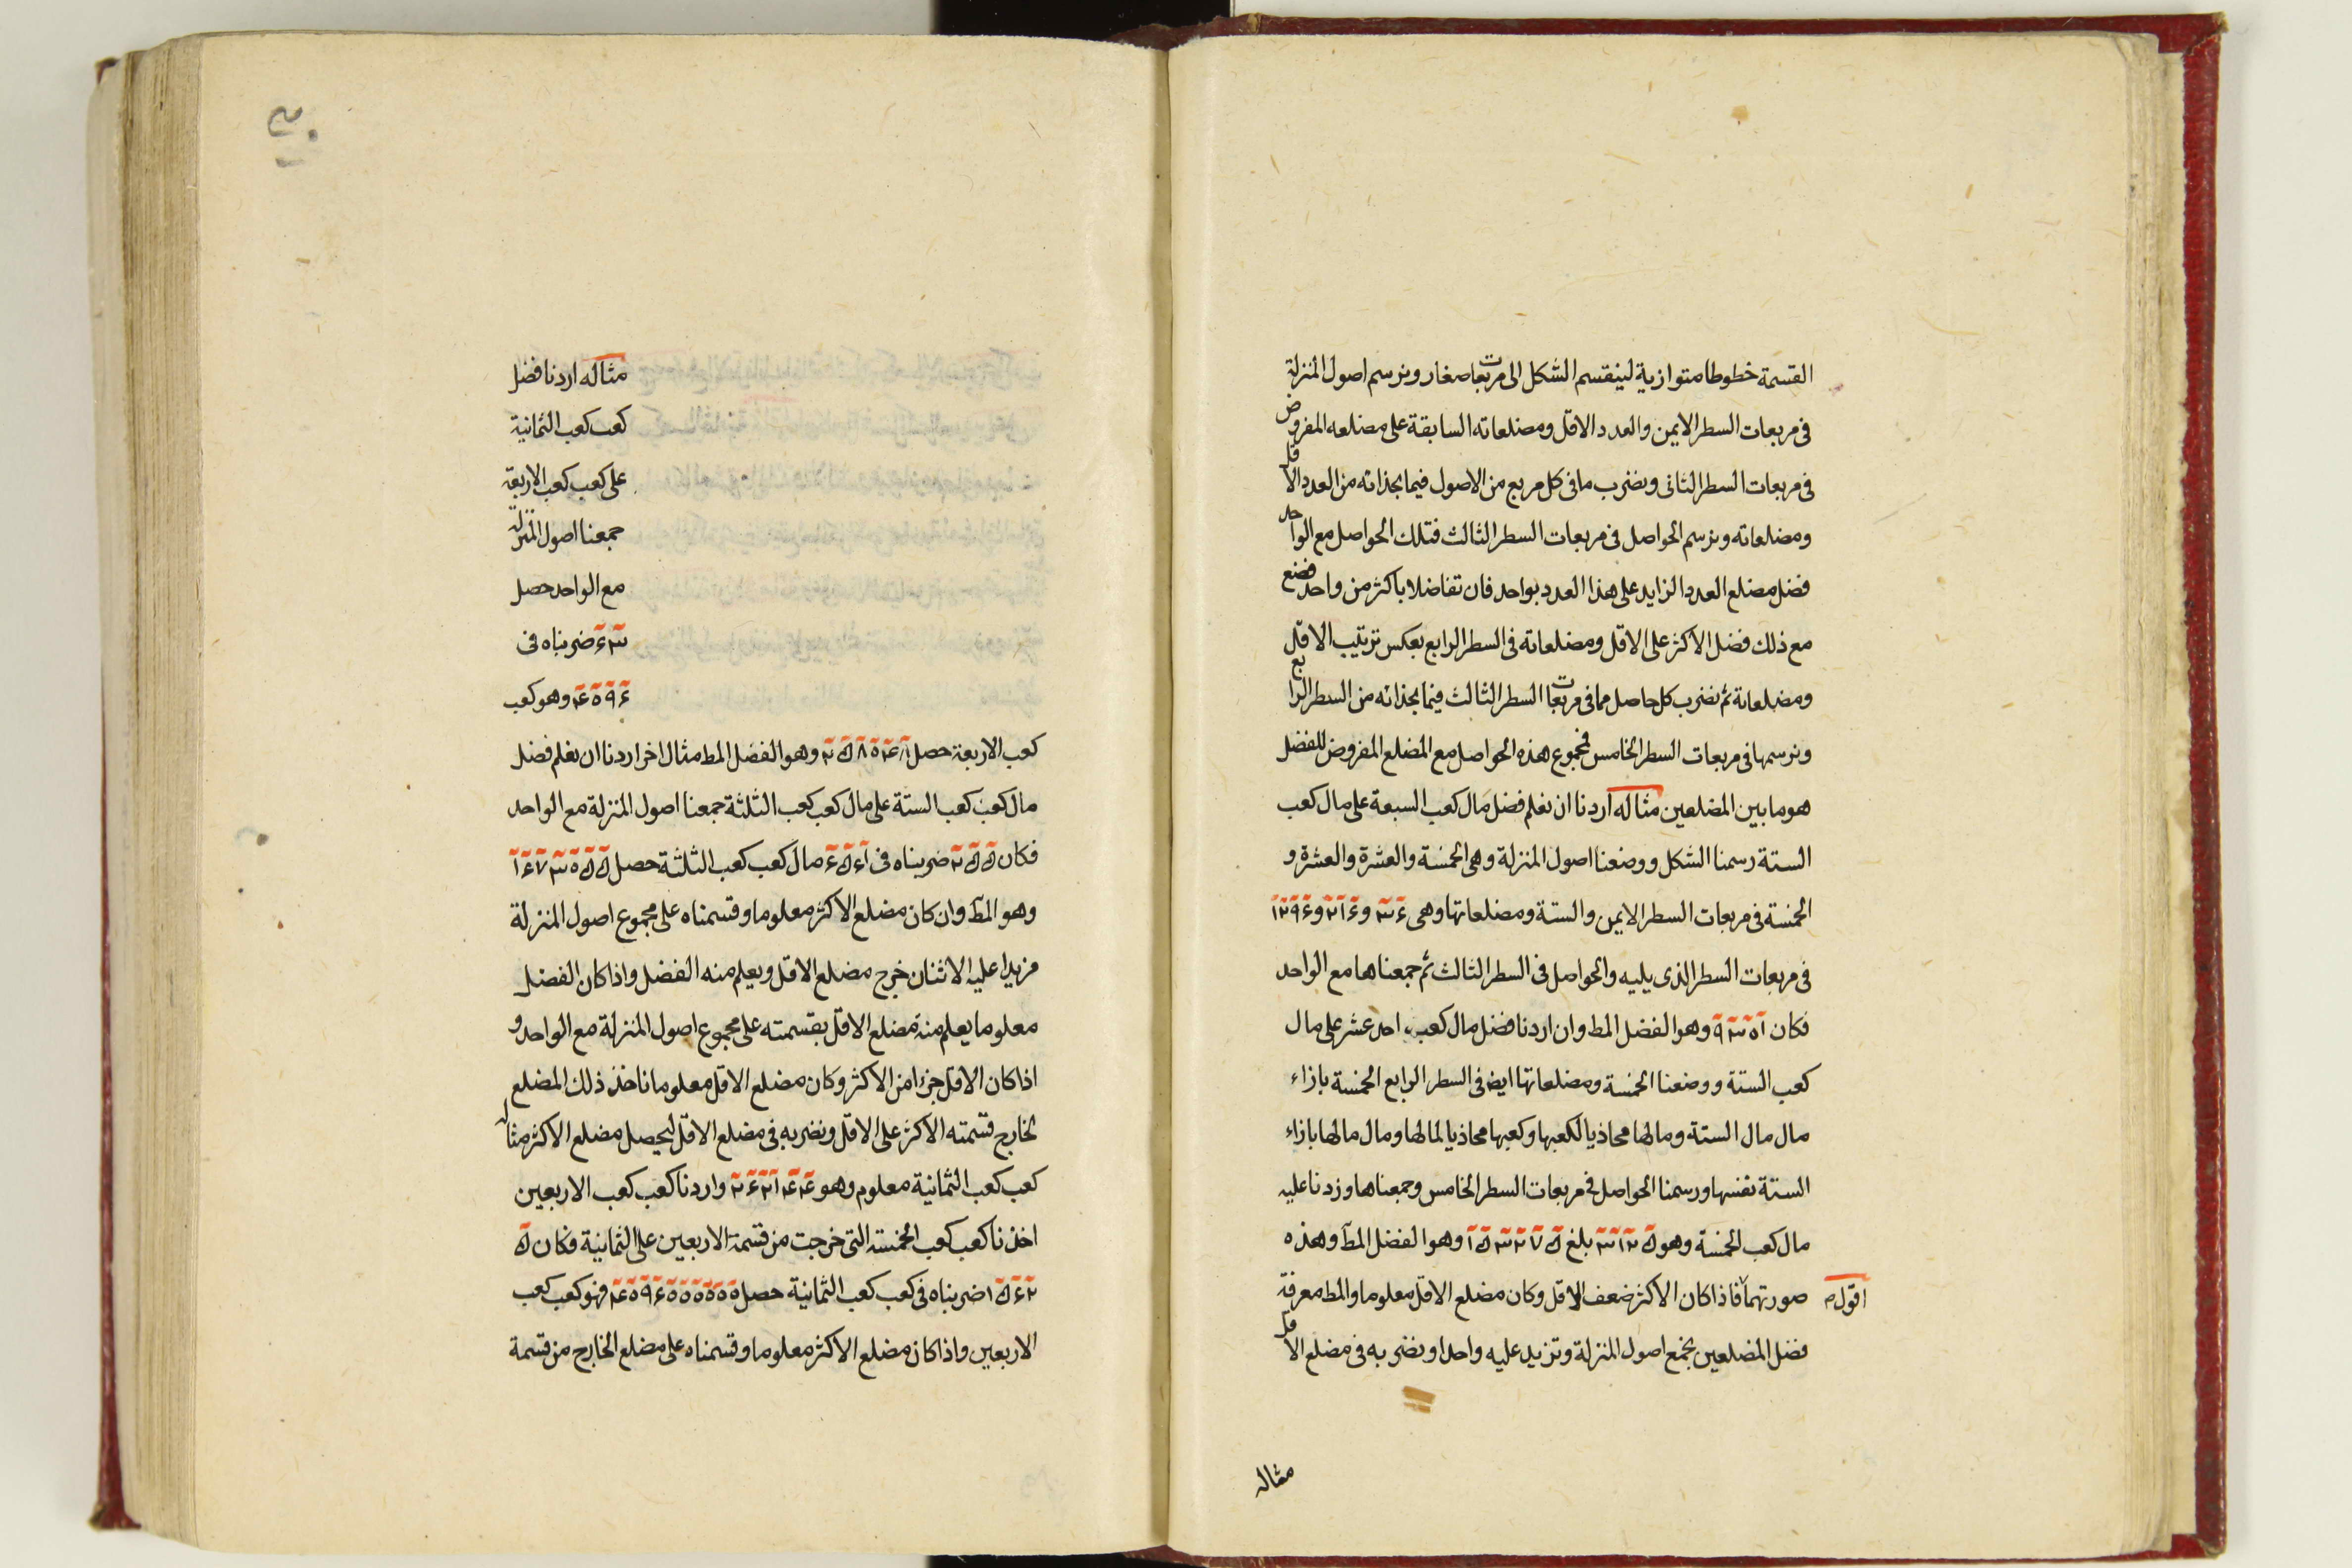 القسمة خطوطا متوازية لينقسم الشكل الى مربعات صغار ونرسم اصول المنزلة
فى مربعات السطر الايمن والعدد الاقل ومضلعاته السابقة على مضلعه المفروض
فى مربعات السطر الثانى ونضرب ما فى كل مربع من الاصول فيما بحذائه من العدد الاقل
ومضلعاته ونرسم الحواصل فى مربعات السطر الثالث فتلك الحواصل مع الواحد
فضل مضلع العدد الزايد على هذا العدد بواحد فان تفاضلا باكثر من واحد فنضع
مع ذلك فضل الاكثر على الاقل ومضلعاته فى السطر الرابع بعكس ترتيب الاقل
ومضلعاته ثم نضرب كل حاصل مما فى مربعات السطر الثالث فيما بحذائه من السطر الرابع
ونرسمها فى مربعات السطر الخامس فمجموع هذه الحواصل مع المضلع المفروض للفضل
هو ما بين المضلعين مثاله اردنا ان نعلم فضل مال كعب السبعة على مال كعب
الستة رسمنا الشكل ووضعنا اصول المنزلة وهى الخمسة والعشرة والعشرة و
الخمسة فى مربعات السطر الايمن والستة ومضلعاتها وهى ٣٦ و ٢١٦ و ١٢٩٦
فى مربعات السطر الذى يليه والحواصل فى السطر الثالث ثم جمعناها مع الواحد
فكان ٩٠٣١ وهو الفضل المط وان اردنا فضل مال كعب احد عشر على مال
كعب الستة ووضعنا الخمسة ومضلعاتها ايض فى السطر الرابع الخمسة بازاء
مال مال الستة ومالها محاذيا لكعبها وكعبها محاذيا لمالها ومال مالها بازاء
الستة نفسها ورسمنا الحواصل فى مربعات السطر الخامس وجمعناها وزدنا عليه
مال كعب الخمسة وهو ٣١٢٥ بلغ ١٥٣٢٧٥ وهو الفضل المط وهذه
صورتهما فاذا كان الاكثر ضعف الاقل وكان مضلع الاقل معلوما والمط معرفة
اقول
فضل المضلعين نجمع اصول المنزلة وتزيد عليه واحدا ونضربه فى مضلع الاقل
مثاله
مثاله اردنا فضل
كعب كعب الثمانية
على كعب كعب الاربعة
جمعنا اصول المنزلة
مع الواحد حصل
٦٣ ضربناه فى
٤٠٩٦ وهو كعب
كعب الاربعة حصل ٢٥٨٠٤٨ وهو الفضل المط مثال اخر اردنا ان نعلم فضل
مال كعب كعب الستة على مال كعب كعب الثلثة جمعنا اصول المنزلة مع الواحد
فكان ٢٥٥ ضربناه فى ٦٥٦١ مال كعب كعب الثلثة حصل ١٦٧٣٠٥٥
وهو المط وان كان مضلع الاكثر معلوما وقسمناه على مجموع اصول المنزلة
مزيدا عليه الاثنان خرج مضلع الاقل ويعلم منه الفضل واذا كان الفضل
معلوما يعلم منه مضلع الاقل بقسمته على مجموع اصول المنزلة مع الواحد و
اذا كان الاقل جزءا من الاكثر وكان مضلع الاقل معلوما ناخذ ذلك المضلع
لخارج قسمته الاكثر على الاقل ونضربه فى مضلع الاقل ليحصل مضلع الاكثر مثاله
كعب كعب الثمانية معلوم وهو ٢٦٢١٤٤ واردنا كعب كعب الاربعين
اخذنا كعب كعب الخمسة التى خرجت من قسمة الاربعين على الثمانية فكان ٥
٢٦٥١ ضربناه فى كعب كعب الثمانية حصل ٤٠٩٦٠٠٠٠٠٠ فهو كعب كعب
الاربعين واذا كان مضلع الاكثر معلوما وقسمناه على مضلع الخارج من قسمة